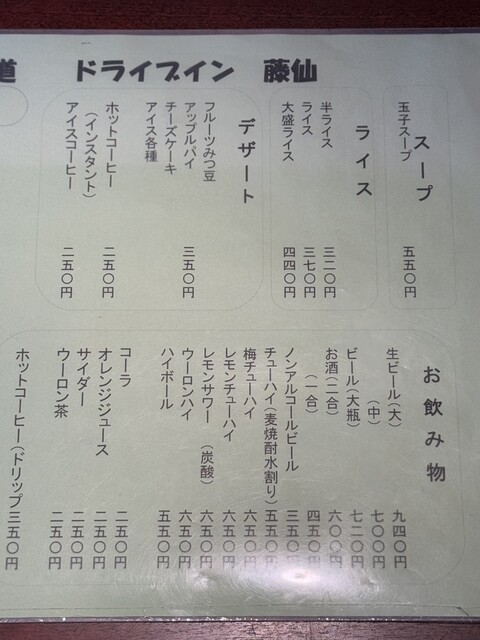 道　ドライブイン　藤仙
スープ
玉子スープ　五五〇円
ライス
半ライス　三二〇円
ライス　三七〇円
大盛ライス　四四〇円
デザート
フルーツみつ豆
アップルパイ　三五〇円
チーズケーキ
アイス各種
ホットコーヒー　二五〇円
（インスタント）
アイスコーヒー　二五〇円
お飲み物
生ビール（大）　九四〇円
（中）　七〇〇円
ビール（大瓶）　七二〇円
お酒（二合）　六〇〇円
（一合）　四五〇円
ノンアルコールビール　三五〇円
チューハイ（麦焼酎水割り）　五五〇円
梅チューハイ　六五〇円
レモンチューハイ　六五〇円
レモンサワー（炭酸）　六五〇円
ウーロンハイ　六五〇円
ハイボール　五五〇円
コーラ　二五〇円
オレンジジュース　二五〇円
サイダー　二五〇円
ウーロン茶　二五〇円
ホットコーヒー（ドリップ　三五〇円